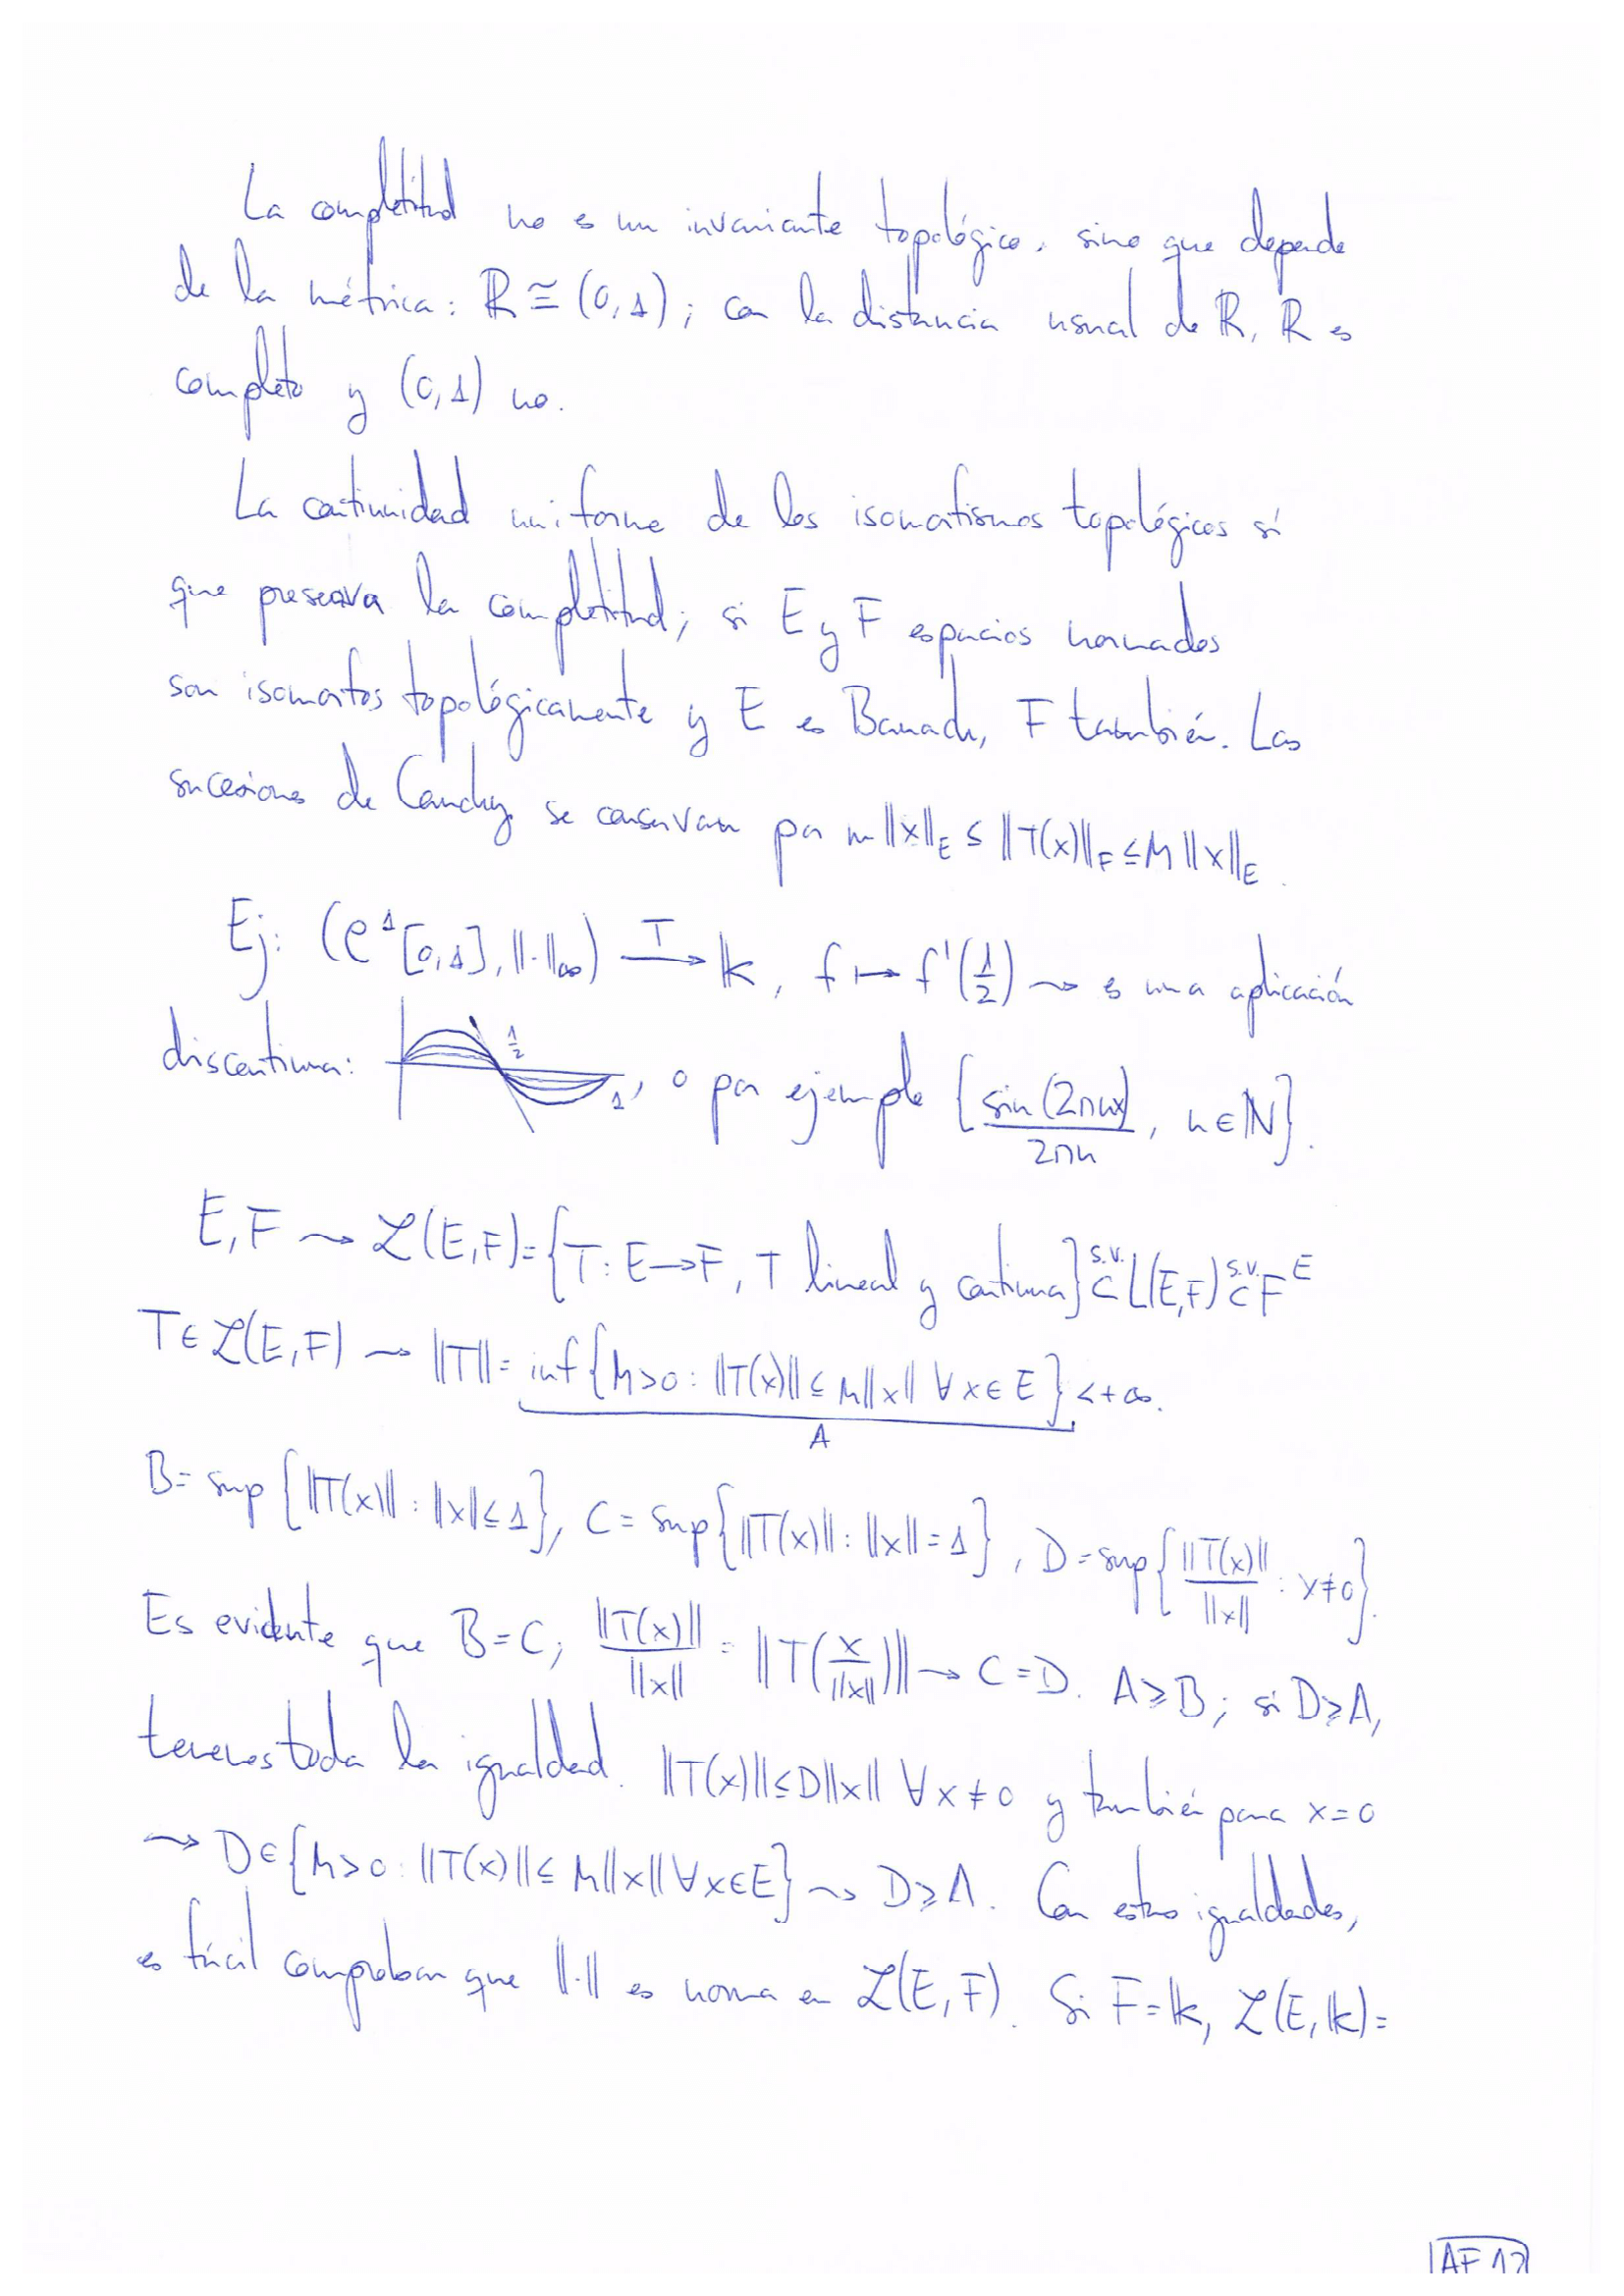 La completitud no es un invariante topológico, sino que depende
de la métrica: ℝ ≅ (0,1); con la distancia usual de ℝ, ℝ es
completo y (0,1) no.
La continuidad uniforme de los isomorfismos topológicos sí
que preserva la completitud; si E y F espacios normados
son isomorfos topológicamente y E es Banach, F también. Las
sucesiones de Cauchy se conservan por m‖x‖_E ≤ ‖T(x)‖_F ≤ M‖x‖_E.
Ej: (𝒞^1[0,1], ‖·‖_∞) —T→ 𝕜, f ↦ f'(1/2) ⇝ es una aplicación
discontinua: 1/2 1, o por ejemplo {sin(2πnx)/2πn, n∈ℕ}.
E,F ⇝ ℒ(E,F)={T: E→F, T lineal y continua} s.v. ⊂ L(E,F) s.v. ⊂ F^E
T∈ℒ(E,F) ⇝ ‖T‖= inf{M>0: ‖T(x)‖ ≤ M‖x‖ ∀x∈E} <+∞.
A
B= sup{‖T(x)‖: ‖x‖≤1}, C= sup{‖T(x)‖: ‖x‖=1}, D= sup{‖T(x)‖/‖x‖ : x≠0}.
Es evidente que B=C; ‖T(x)‖/‖x‖ = ‖T(x/‖x‖)‖ → C=D. A≥B; si D≥A,
tenemos toda la igualdad. ‖T(x)‖≤D‖x‖ ∀x≠0 y también para x=0
⇝ D∈{M>0: ‖T(x)‖≤ M‖x‖ ∀x∈E} ⇝ D≥A. Con estas igualdades,
es fácil comprobar que ‖·‖ es norma en ℒ(E,F). Si F=𝕜, ℒ(E,𝕜)=
AF 12